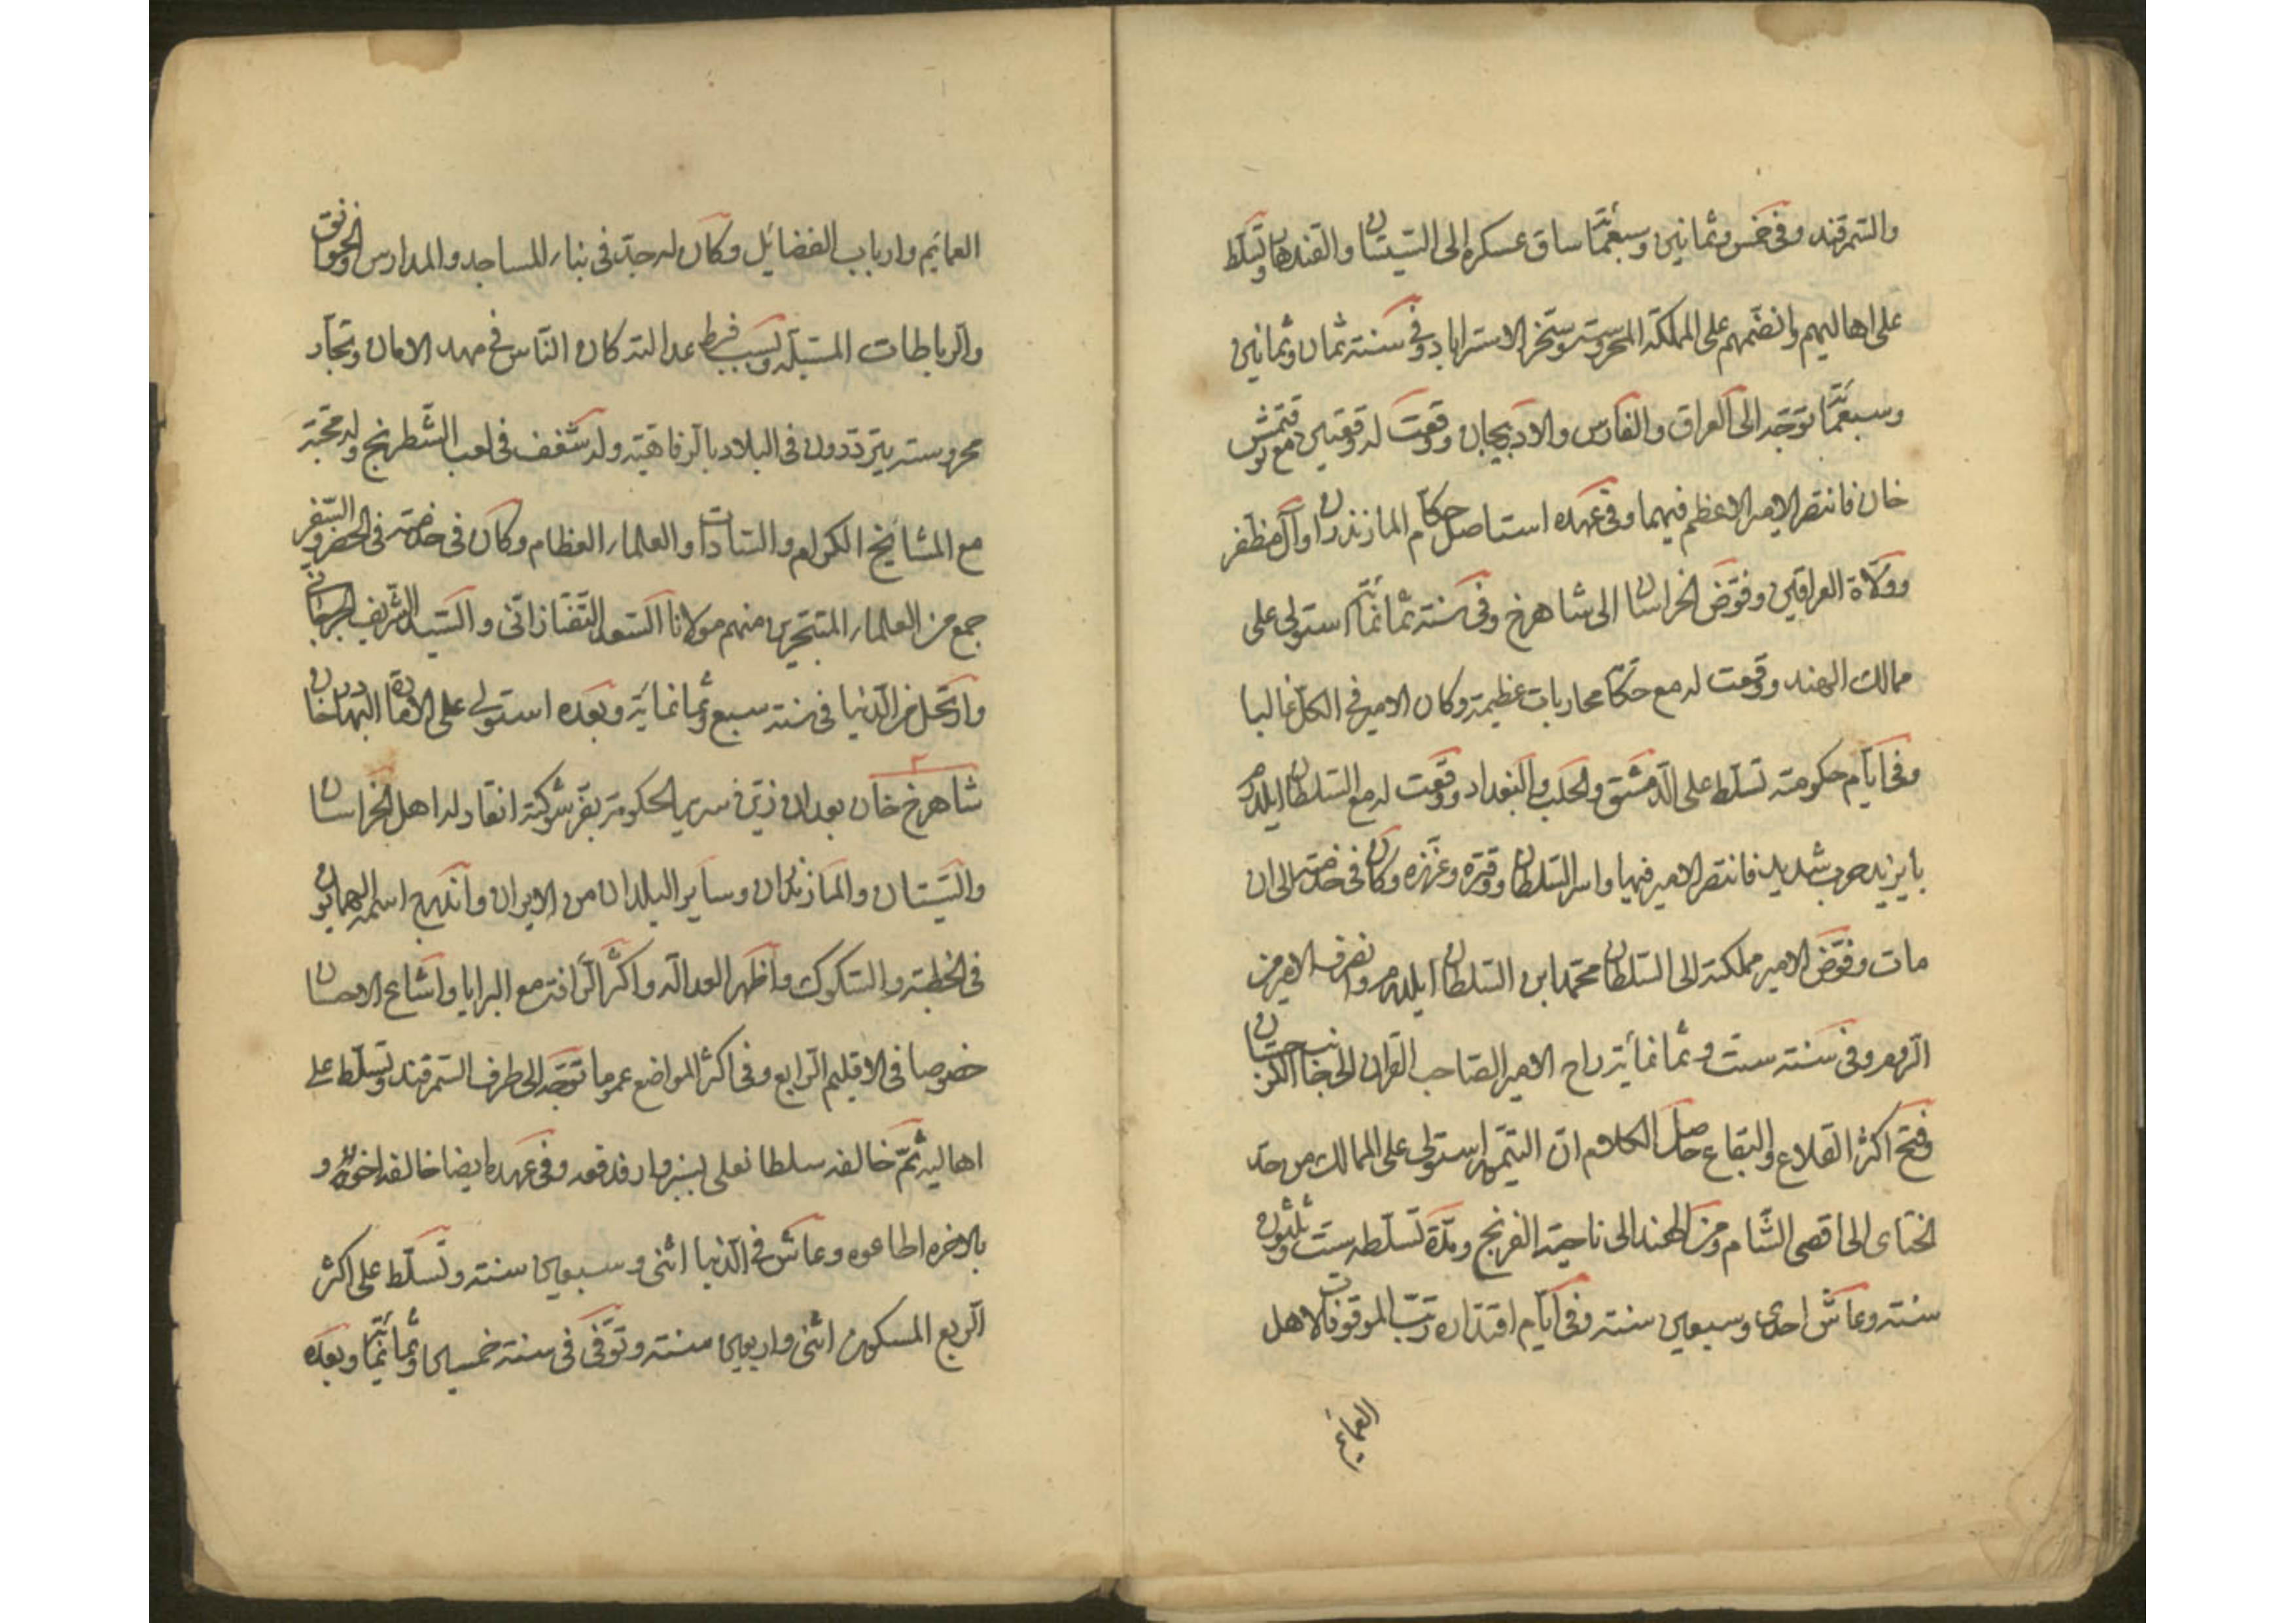 والسّمرقند وفى خمس وثمانين وسبعمّائة ساق عسكره الى السّيستان والقندهار وتسلّط
على اهاليهم وانضمّهم على المملكة المحروسته وسخّر الاستراباد وفى سنته ثمان وثمانين
وسبعمّائة توجّه الى العراق والفارس والادبيجان ووقعت له وقعتين مع توقتمش
خان فانتصر الامير الاعظم فيهما وفى عهده استاصل حكّام المازندران وآل مظفر
وولاة العراقين وفوّض الخراسان الى شاهرخ وفى سنته ثمانمّائة استولى على
ممالك الهند ووقعت له مع حكّامّا محاربات عظيمته وكان الامير فى الكلّ غالبا
وفى ايّام حكومته تسلّط على الدّمشق والحلب والبغداد ووقعت له مع السّلطان ايلدرم
بايزيد حرب شديد فانتصر الامير فيها واسر السّلطان ووقّره وعزّزه وكان فى خدمته الى ان
مات وفوّض الامير مملكته الى السّلطان محمّد ابن السّلطان ايلدرم وانصرف الامير من
الرّوم وفى سنته ستّ وثمانمأية راح الامير الصّاحب القران الى جانب الكرجستان
وفتح اكثر القلاع والبقاع حاصل الكلام انّ التيّمور استولى على الممالك من حدّ
الختاى الى اقصى الشّام ومن الهند الى ناحية الفرنج ومدّة تسلّطه ستّ وثلثون
سنته وعاش احدى وسبعين سنته وفى ايّام اقتداره رتّب الموقوفات لاهل
العمايم
العمايم وارباب الفضايل وكان له جدّ فى بناء المساجد والمدارس والخوانق
والرباطات المسبّله وبسبب فرط عدالته كان النّاس فى مهد الامان وتجّار
محروسته يتردّدون فى البلاد بالرفاهيّة وله شغف فى لعب الشّطرنج وله محبّة
مع المشايخ الكرام والسّادات والعلماء العظام وكان فى خدمته فى الحضر والسّفر
جمع من العلماء المتبحّرين منهم مولانا السّعد التّفتازانّى والسّيد الشّريف الجرجانى
وارتحل من الدّنيا فى سنته سبع وثمانمأية وبعده استولى على الامارة البهادرخان
شاهرخ خان بعد ان زيّن سرير الحكومة بقرّ شوكته انقاد له اهل الخراسان
والسّيستان والمازندران وساير البلدان من الايران واندرج اسمه الهمايون
فى الخطبته والسّكوك واظهر العدالة واكثر الرّافته مع البرايا واشاع الاحسان
خصوصا فى الاقليم الرّابع وفى اكثر المواضع عموما توجّه الى طرف السّمرقند وتسلّط على
اهاليه ثمّ خالفه سلطانعلى بسبزوار فدفعه وفى عهده ايضا خالفه اخوته و
بالاخره اطاعوه وعاش فى الدّنيا اثنى وسبعين سنته وتسلّط على اكثر
الرّبع المسكون اثنى واربعين سنته وتوفّى فى سنته خمسين وثمانمّائة وبعده